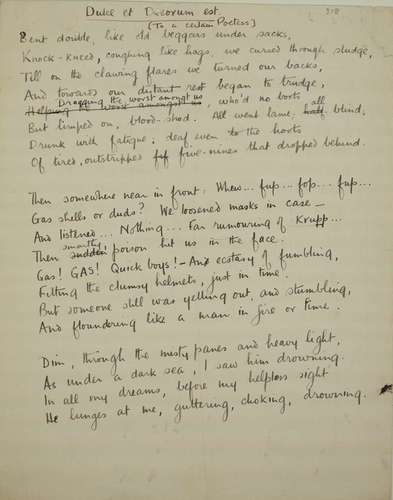 Dulce et Decorum est.
[To a certain Poetess]
Bent double, like old beggars under sacks,
Knock-kneed, coughing like hags, we cursed through sludge,
Till on the clawing flares we turned our backs,
And towards our distant rest began to trudge,
Dragging the worst amongst us
Helping the worst amongst us, who'd no boots
But limped on, blood-shod. All went lame; all half blind;
Drunk with fatigue; deaf even to the hoots
Of tired, outstripped fif five-nines that dropped behind.
Then somewhere near in front: Whew... fup... fop... fup...
Gas shells or duds? We loosened masks in case –
And listened... Nothing... Far rumouring of Krupp...
smartly
Then sudden poison hit us in the face.
Gas! GAS! Quick boys! – An ecstasy of fumbling,
Fitting the clumsy helmets, just in time.
But someone still was yelling out, and stumbling,
And floundering like a man in fire or lime.
Dim, through the misty panes and heavy light,
As under a dark sea, I saw him drowning.
In all my dreams, before my helpless sight
He lunges at me, guttering, choking, drowning.